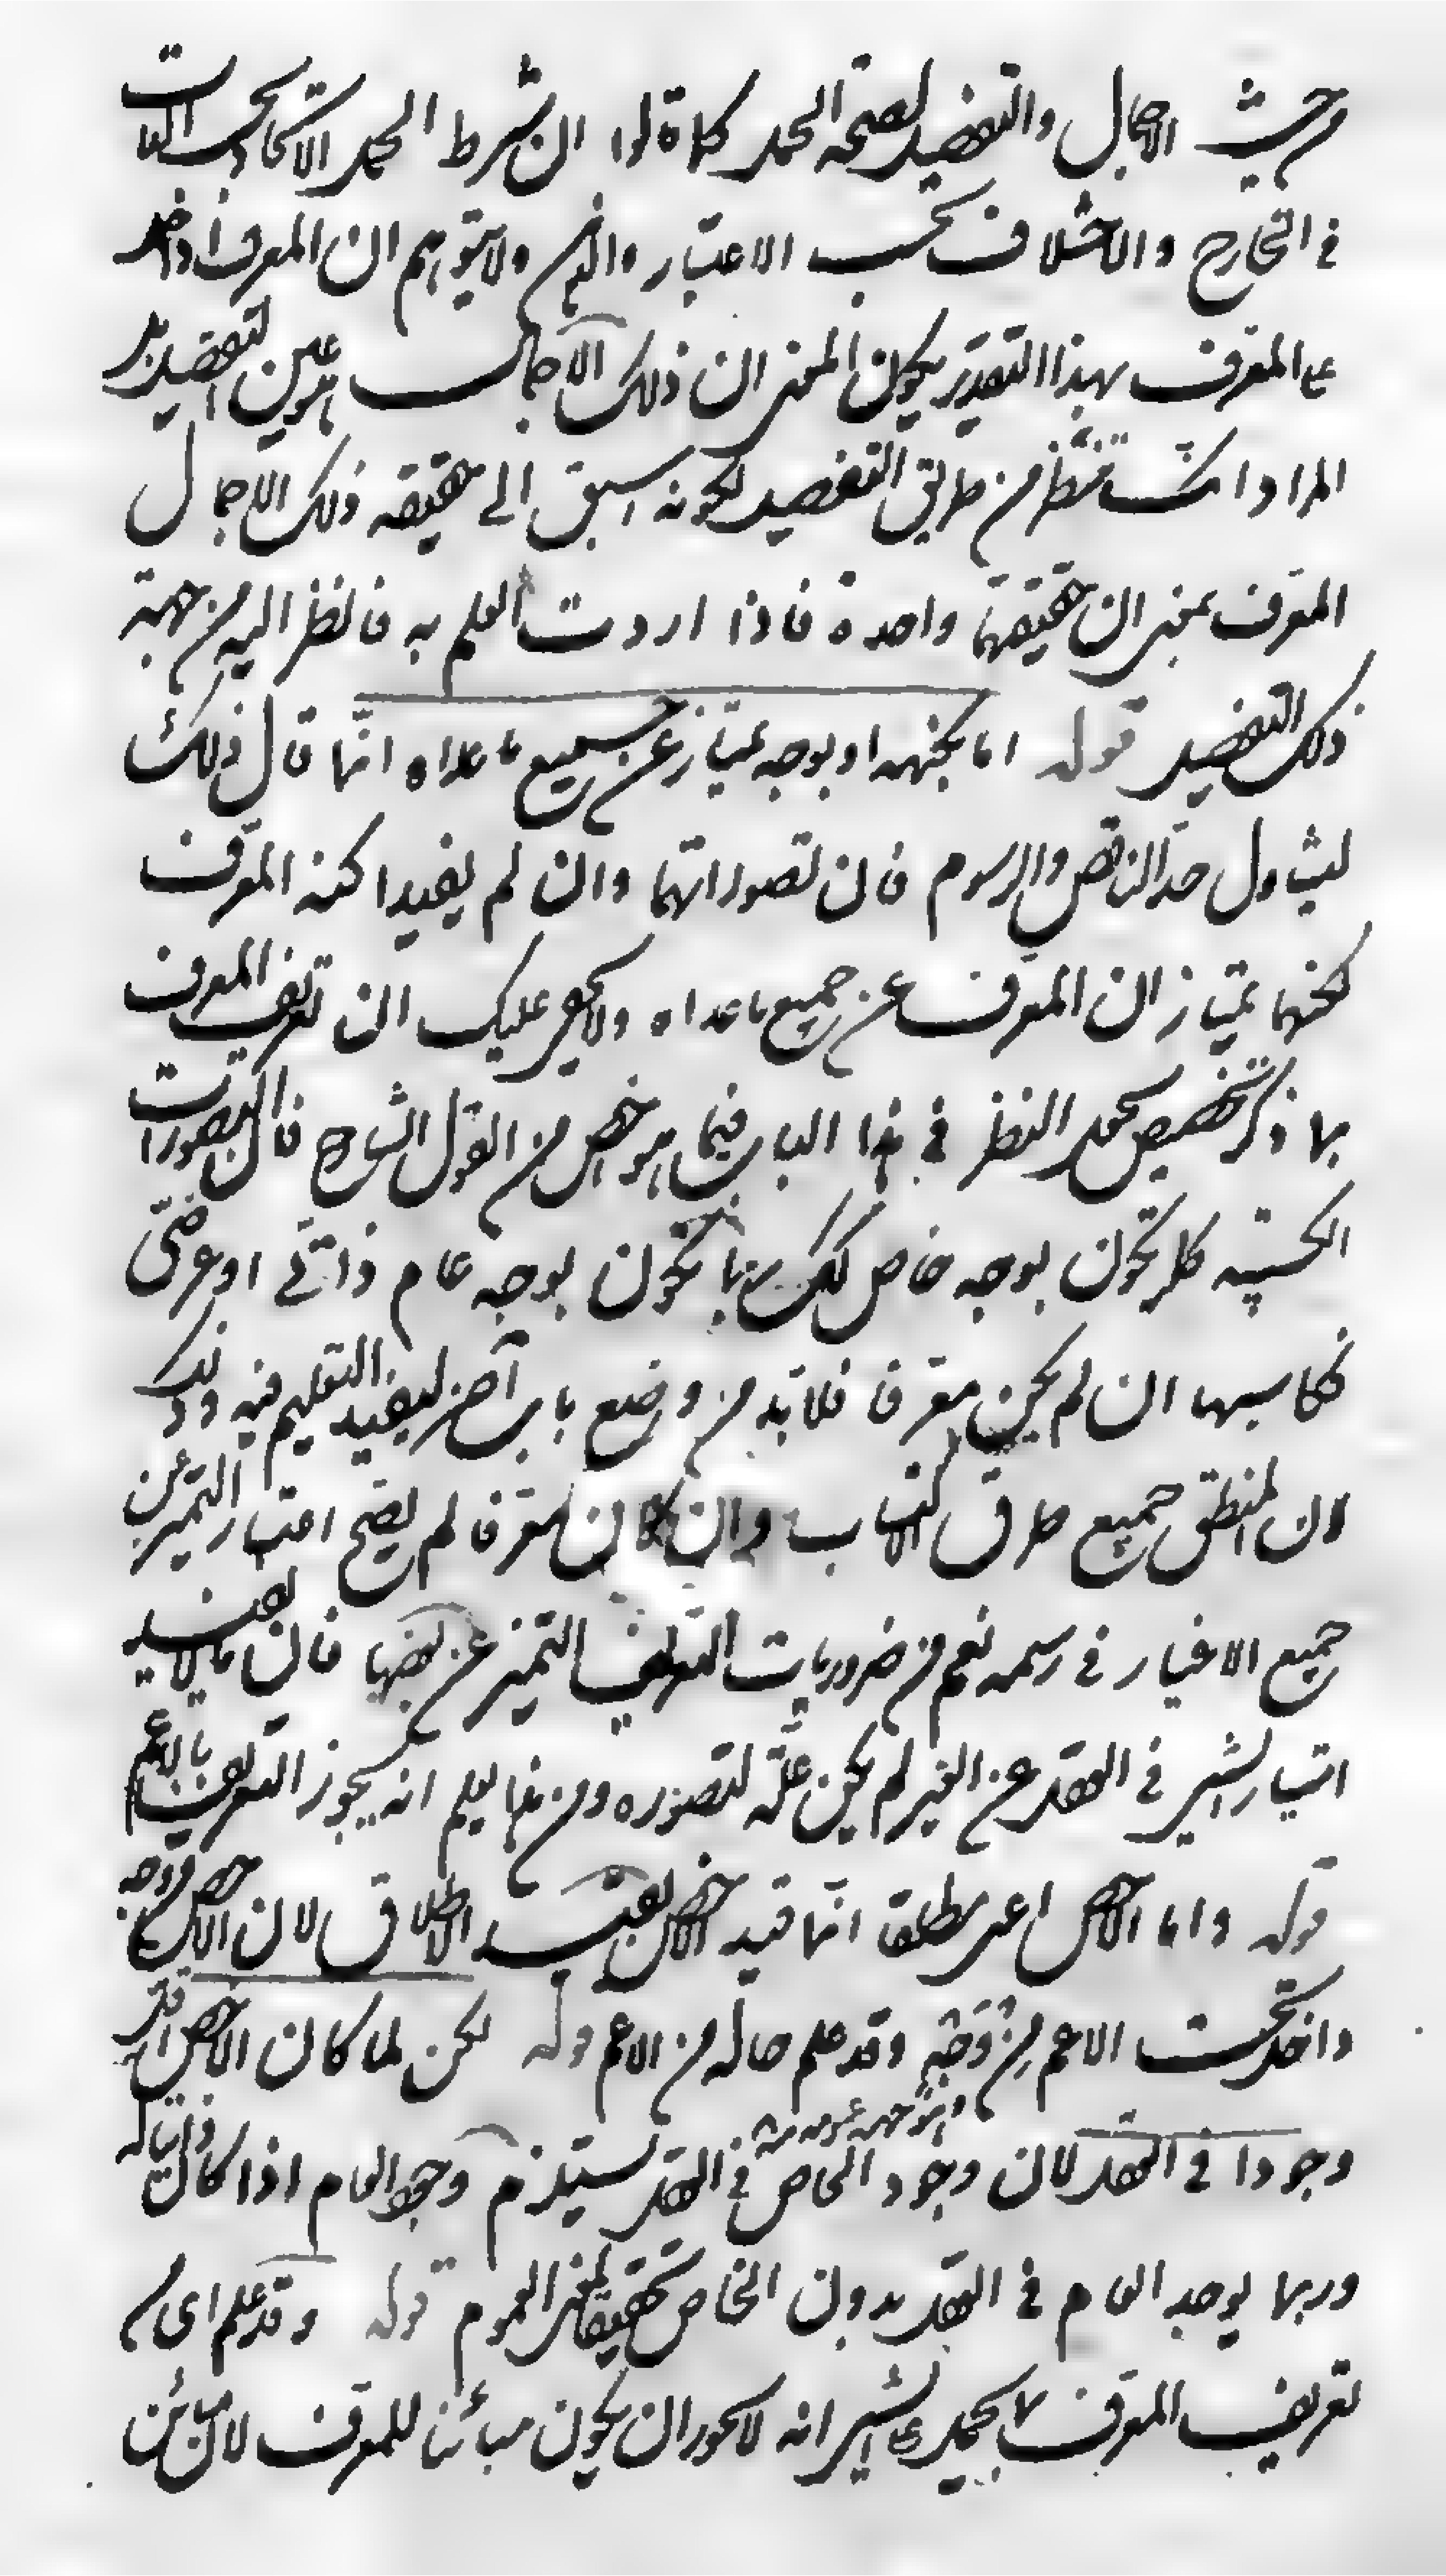 من حيث الاجمال والتفصيل لصحة الحمل كما قالوا ان شرط الحمل الاتحاد بحسب الذات
في الخارج والاختلاف بحسب الاعتبار والذهن ولا يتوهم ان المعرف اذا حمل
على المعرف بهذا التقدير يكون المعنى ان ذلك الاجمال هو عين التفصيل بل
المراد انك تنظر من طريق التفصيل لكونه اسبق الى حقيقة ذلك الاجمال
المعرف بمعنى ان حقيقتهما واحدة فاذا اردت العلم به فانظر اليه من جهة
ذلك التفصيل قوله اما بكنهه او بوجه يمتاز عن جميع ما عداه انما قال ذلك
ليتناول حد الناقص والرسوم فان تصوراتهما وان لم يفيدا كنه المعرف
لكنهما يميزان المعرف عن جميع ما عداه ولا يخفى عليك ان تعريف المعرف
بما ذكر تخصيص لمحل النظر في هذا الباب فيما هو اخص من القول الشارح فان التصورات
الكسبية كما تكون بوجه خاص كذلك ربما تكون بوجه عام ذاتي او عرضي
فكاسبها ان لم يكن معرفا فلا بد من وضع باب آخر ليفيد التعليم فيه وذلك
لان المنطق جميع طرق اكتساب وان كان معرفا لم يصح اعتبار التميز عن
جميع الاغيار في رسمه نعم من ضروريات التعريف التميز عن بعضها فان ما لا يفيد
امتياز الشيء في العقل عن الغير لم يكن علة لتصوره ومن هذا يعلم انه يجوز التعريف بالاعم
قوله واما الاخص اعني مطلقا انما قيد الاخص بقيد الاطلاق لان الاخص من وجه
داخل تحت الاعم من وجه وقد علم حاله من الاعم قوله لكن لما كان الاخص اقل
وجودا في العقل لان وجود الخاص في العقل يستلزم وجود العام اذا كان ذاتيا له
وربما يوجد العام في العقل بدون الخاص تحقيقا لمعنى العموم قوله وقد علم اى من
تعريف المعرف بما يحمل على الشيء انه لا يجوز ان يكون مبائنا للمعرف لان المبائن